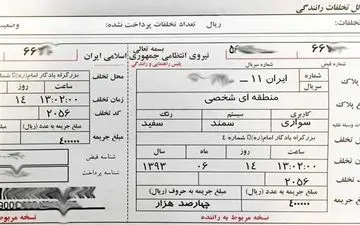 کل تخلفات رانندگی
ریال تعداد تخلفات پرداخت نشده:
بسمه تعالی
نیروی انتظامی جمهوری اسلامی ایران
پلیس راهنمایی و رانندگی
شماره سریال
شماره قبض
محل تخلف
بزرگراه یادگار امام(ره)
ساعت روز
زمان تخلف
۱۳:۰۲:۰۰ ۱۴
کد تخلف
۲۰۵۶
مبلغ جریمه به عدد (ریال)
۴۰۰۰۰۰
شماره
ایران ۱۱
پلاک
منطقه ای شخصی
کاربری سیستم رنگ
سواری سمند سفید
بزرگراه یادگار امام(ره)
ساعت روز ماه سال
۱۳:۰۲:۰۰ ۱۴ ۰۶ ۱۳۹۳
۲۰۵۶
مبلغ جریمه به عدد (ریال) مبلغ جریمه به حروف (ریال)
۴۰۰۰۰۰ چهارصد هزار
نسخه مربوط به راننده
نسخه مربوط